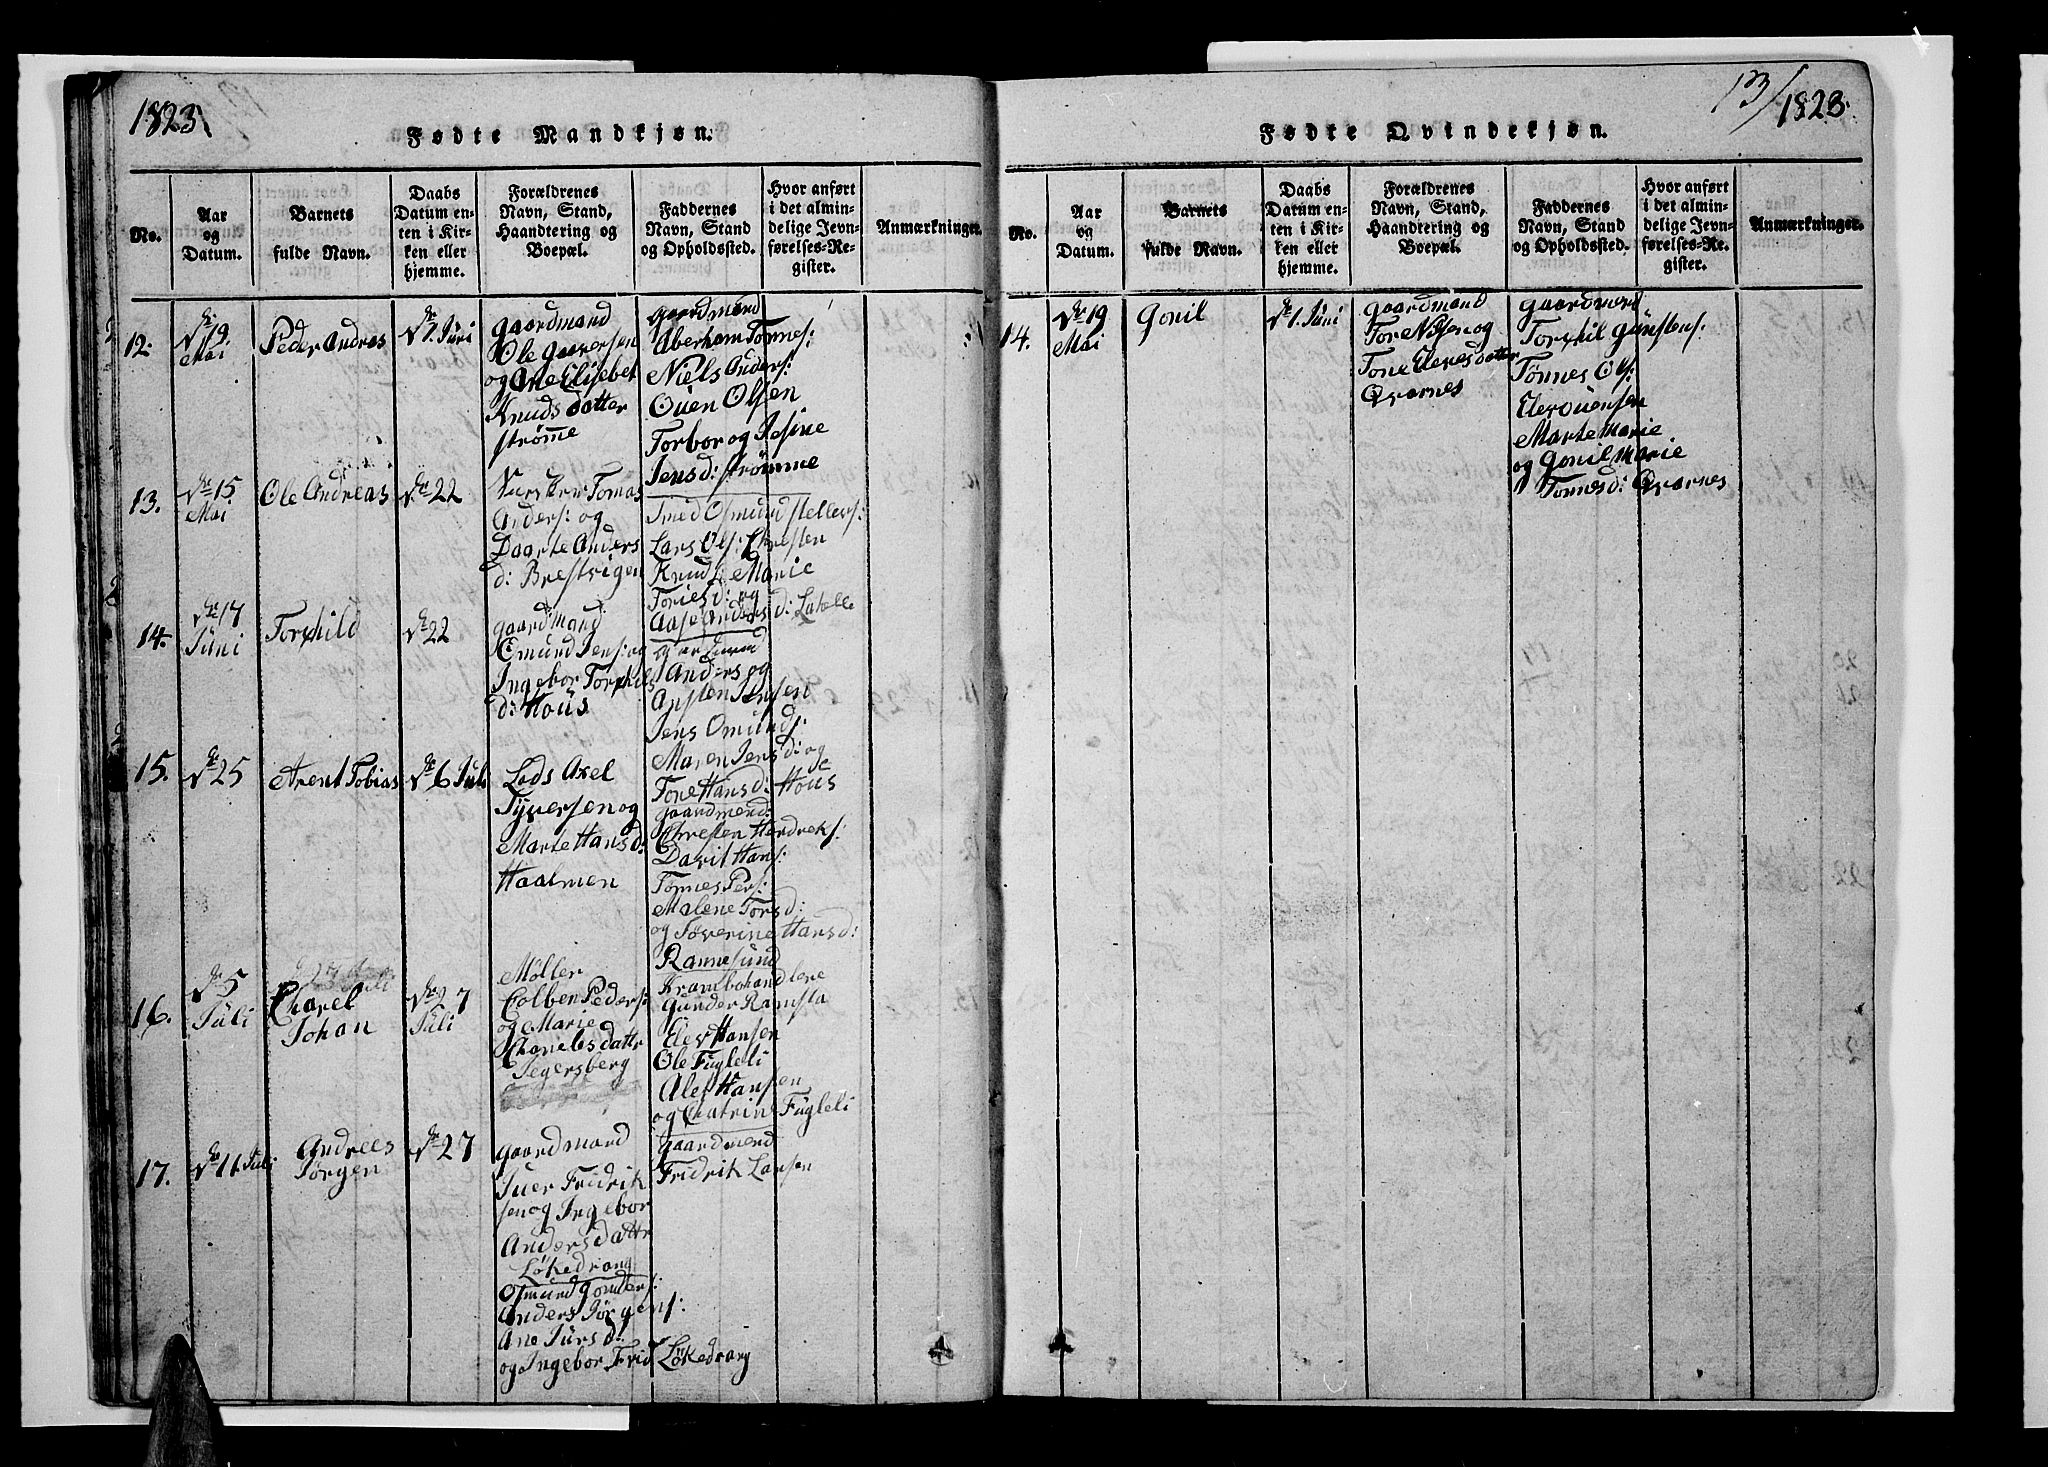 1823
Fødte Mandkjøn.
No.
Aar
og
Datum.
Barnets
fulde Navn.
Daabs
Datum en-
ten i Kir-
ken eller
hjemme.
Forældrenes
Navn, Stand,
Haandtering og
Boepæl.
Faddernes
Navn, Stand
og Opholdssted.
Hvor anført
i det almin-
delige Jevn-
førelses-Re-
gister.
Anmærkninger.
12.
19
Mai
Peder Andras
1. Juni
gaardmand
Ole gaaversen
og Ane Elisebet
Knuds datter
strømme
gaardmand
Aberham Tønnes:
Niels Anders:
Ouen Olsen
Torbor og Jesine
Jens d: strømme
13.
15
Mai
Ole Andreas
22
Tomas
Anders: og
Daarte Anders
d: Brestvigen
Smed Osmund stellers:
Lars Ols: Chresten
Knuds: Marie
Tories d: og
Aase Anders d:
14.
17
Juni
Torkild
22
gaardmand
Emund Jens: og
Ingebor Torkils
d: Hous
Anders og
Ansten Jensen
Jens Omunds:
Maren Jens d: og
Tone Hans d: Hous
15.
25
Arent Tobias
6 Juli
Lods Axel
Syversen og
Marte Hans d:
Haalmen
gaardmend:
Chresten Hendreks:
Davit Hans:
Tønnes Pers:
Malene Tors d:
og Søverine Hans d:
Rannesund
16.
5
Juli
Charel
Johan
27
Juli
Møller
Colben Peders:
og Marie
Charelsdattr
Segersberg
Krambohandlere
Gunder Ramsla
Elev Hansen
Ole Fugleli
Alef Hansen
og Chatrine Fugleli
17.
11 Juli
Andrees
Jørgen
27
gaardmand
Iuer Fridrik
sen og Ingebor
Andersdattr
Løkedrang
Osmund gonders:
Anders Jørgens:
Ane Iurs d:
og Ingebor Frid Løkedrang
gaardmend
Fridrik Larsen
13/
1823.
Fødte Qvindekjøn.
No.
Aar
og
Datum.
Barnets
fulde Navn.
Daabs
Datum en-
ten i Kir-
ken eller
hjemme.
Forældrenes
Navn, Stand,
Haandtering og
Boepæl.
Faddernes
Navn, Stand
og Opholdssted.
Hvor anført
i det almin-
delige Jevn-
førelses-Re-
gister.
Anmærkninger.
14.
19
Mai
Gonil
1. Juni
gaardmand
Tore Nilsen og
Tone Elevesdatter
Qvarnes
gaardmend
Torkil Gunstens:
Tønnes Ols:
Elev Ouensen
Marte Marie
og Gonil Marie
Tønnes d: Qvarnes